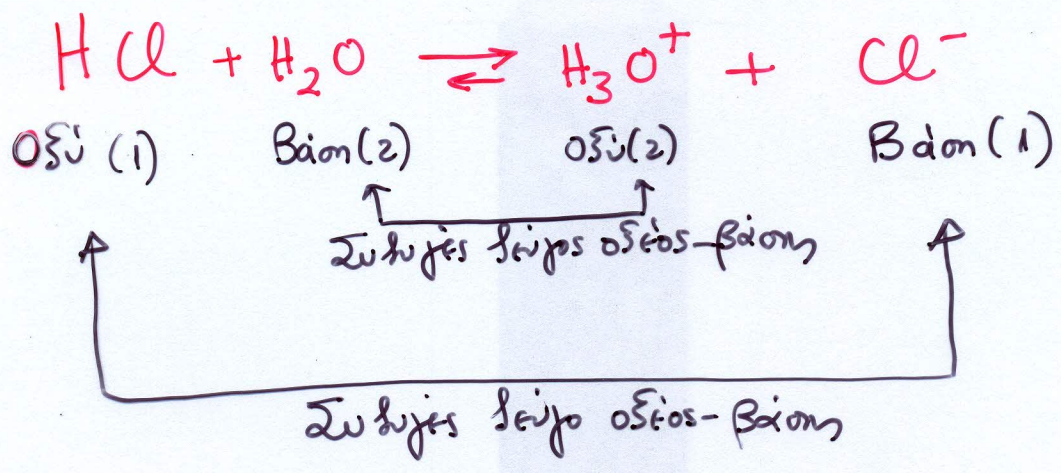 HCl + H₂O ⇌ H₃O⁺ + Cl⁻
Οξύ (1) Βάση(2) Οξύ(2) Βάση(1)
Συζυγές ζεύγος οξέος-βάσης
Συζυγές ζεύγο οξέος-βάσης